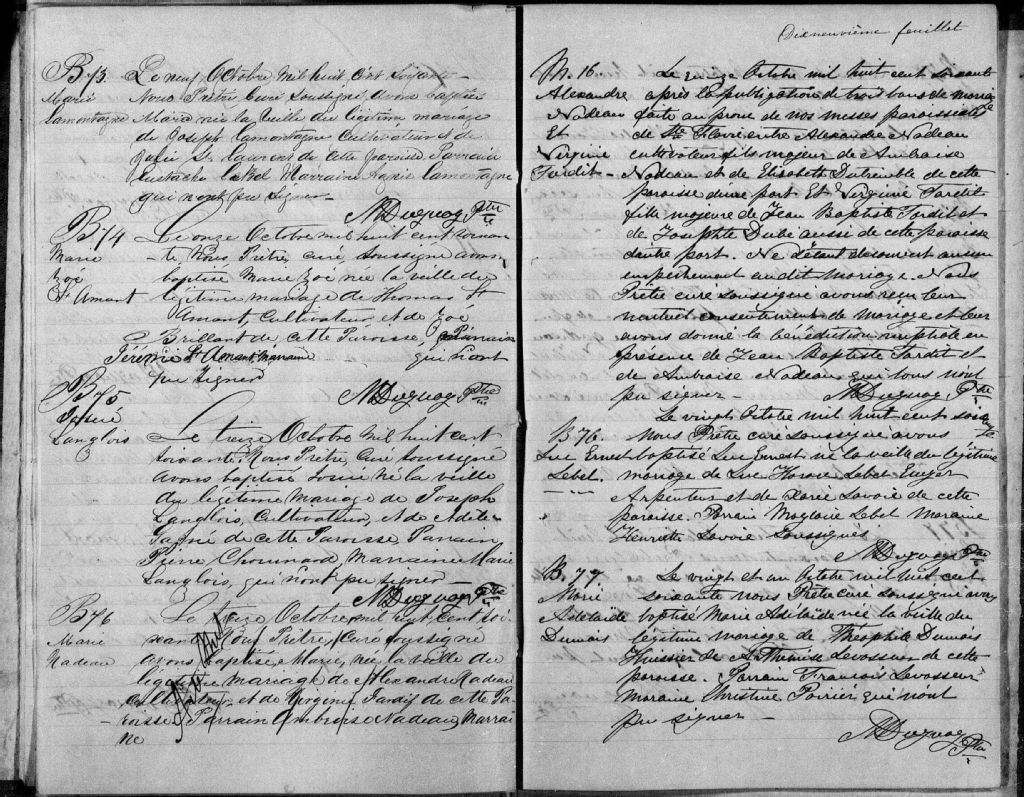 B 73. Le neuf Octobre mil huit cent soixante
Marie Nous Prêtre Curé soussigné avons baptisé
Lamontagne Marie née la veille du légitime mariage
de Joseph Lamontagne Cultivateur et de
Julie St Laurent de cette Paroisse Parrain
Eustache Lebel Marraine Lamontagne
qui n'ont pu signer
MDuguay Ptre
B 74 Le onze Octobre mil huit cent soixan
Marie te, Nous Prêtre, curé, soussigné avons
Zoé baptisé Marie Zoé née la veille du
St Amant légitime mariage de Thomas St
Amant, Cultivateur, et de Zoé
Brillant de cette Paroisse, Parrain
Jérémie St Amant, Marraine qui n'ont
pu signer
MDuguay Ptre
B 75
Josué
Langlois Le treize Octobre mil huit cent
soixante, Nous Prêtre, curé soussigné
avons baptisé Josué né la veille
du légitime mariage de Joseph
Langlois, Cultivateur, et de Adèle
Gagné de cette Paroisse Parrain
Pierre Chouinard Marraine Marie
Langlois, qui n'ont pu signer
MDuguay Ptre
B 76 Le treize Octobre mil huit Cent soi
Marie xante Nous Prêtre, Curé soussigné
Nadeau avons Baptisé, Marie, née, la veille du
légitime mariage de Alexandre Nadeau
Cultivateur, et de Virginie Tardif de cette Pa
roisse Parrain Ambroise Nadeau, Marrai
ne
Dixneuvième feuillet
M. 16 Le quinze Octobre mil huit cent soixante
Alexandre après la publication de trois bans de mariage
Nadeau faite au prone de nos messes paroissiales
Et de Ste Flavie entre Alexandre Nadeau
Virginie cultivateur fils majeur de Ambroise
Tardif Nadeau et de Elisabeth Dutremble de cette
paroisse d'une part Et Virginie Tardif
fille majeure de Jean Baptiste Tardif et
de Josephte Dubé aussi de cette paroisse
d'autre part. Ne s'étant découvert aucun
empêchement au dit Mariage. Nous
Prêtre curé soussigné avons reçu leur
mutuel consentement de Mariage et leur
avons donné la bénédiction nuptiale en
présence de Jean Baptiste Tardif et
de Ambroise Nadeau qui tous n'ont
pu signer MDuguay, Ptre
Le vingt Octobre mil huit cent soixante
B 76. Nous Prêtre curé soussigné avons
Luc Ernest baptisé Luc Ernest né la veille du légitime
Lebel. mariage de Luc Horace Lebel Ecuyer
Arpenteur et de Lavoie de cette
paroisse. Parrain Magloire Lebel Maraine
Henriette Lavoie Soussignés
MDuguay Ptre
B. 77. Le vingt et un Octobre mil huit cent
Marie soixante nous Prêtre curé soussigné avons
Adélaïde baptisé Marie Adélaïde née la veille du
Dumais légitime mariage de Théophile Dumais
Huissier de Levasseur de cette
paroisse. Parrain Francois Levasseur
Maraine Christine Poirier qui n'ont
pu signer
MDuguay Ptre